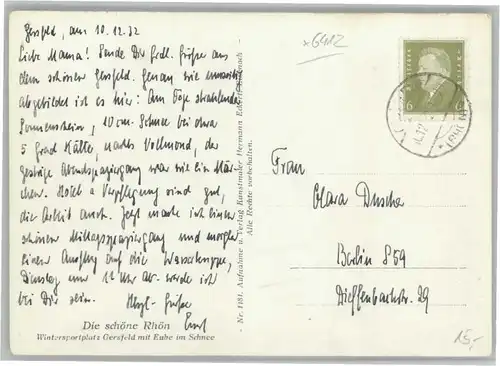 Gersfeld, am 10.12.32
Liebe Mama! Sende Dir herzl. Grüße aus
dem schönen Gersfeld. Genau wie umseitig
abgebildet ist es hier: Am Tage strahlender
Sonnenschein, 10 cm Schnee bei etwa
5 Grad Kälte, nachts Vollmond, der
gestrige Abendspaziergang war wie ein Mär-
chen. Hotel u Verpflegung sind gut,
die Arbeit auch. Jetzt mache ich einen
schönen Mittagsspaziergang und morgen
einen Ausflug auf die Wasserkuppe,
Dienstag um 12 Uhr werde ich
bei Dir sein. Herzl. Grüße
Die schöne Rhön
Wintersportplatz Gersfeld mit Eube im Schnee
Nr. 1181. Aufnahme u. Verlag Kunstmaler Hermann
Alle Rechte vorbehalten.
x6412
6 6
Frau
Clara Duscha
Berlin S59
Dieffenbachstr. 29
15,-